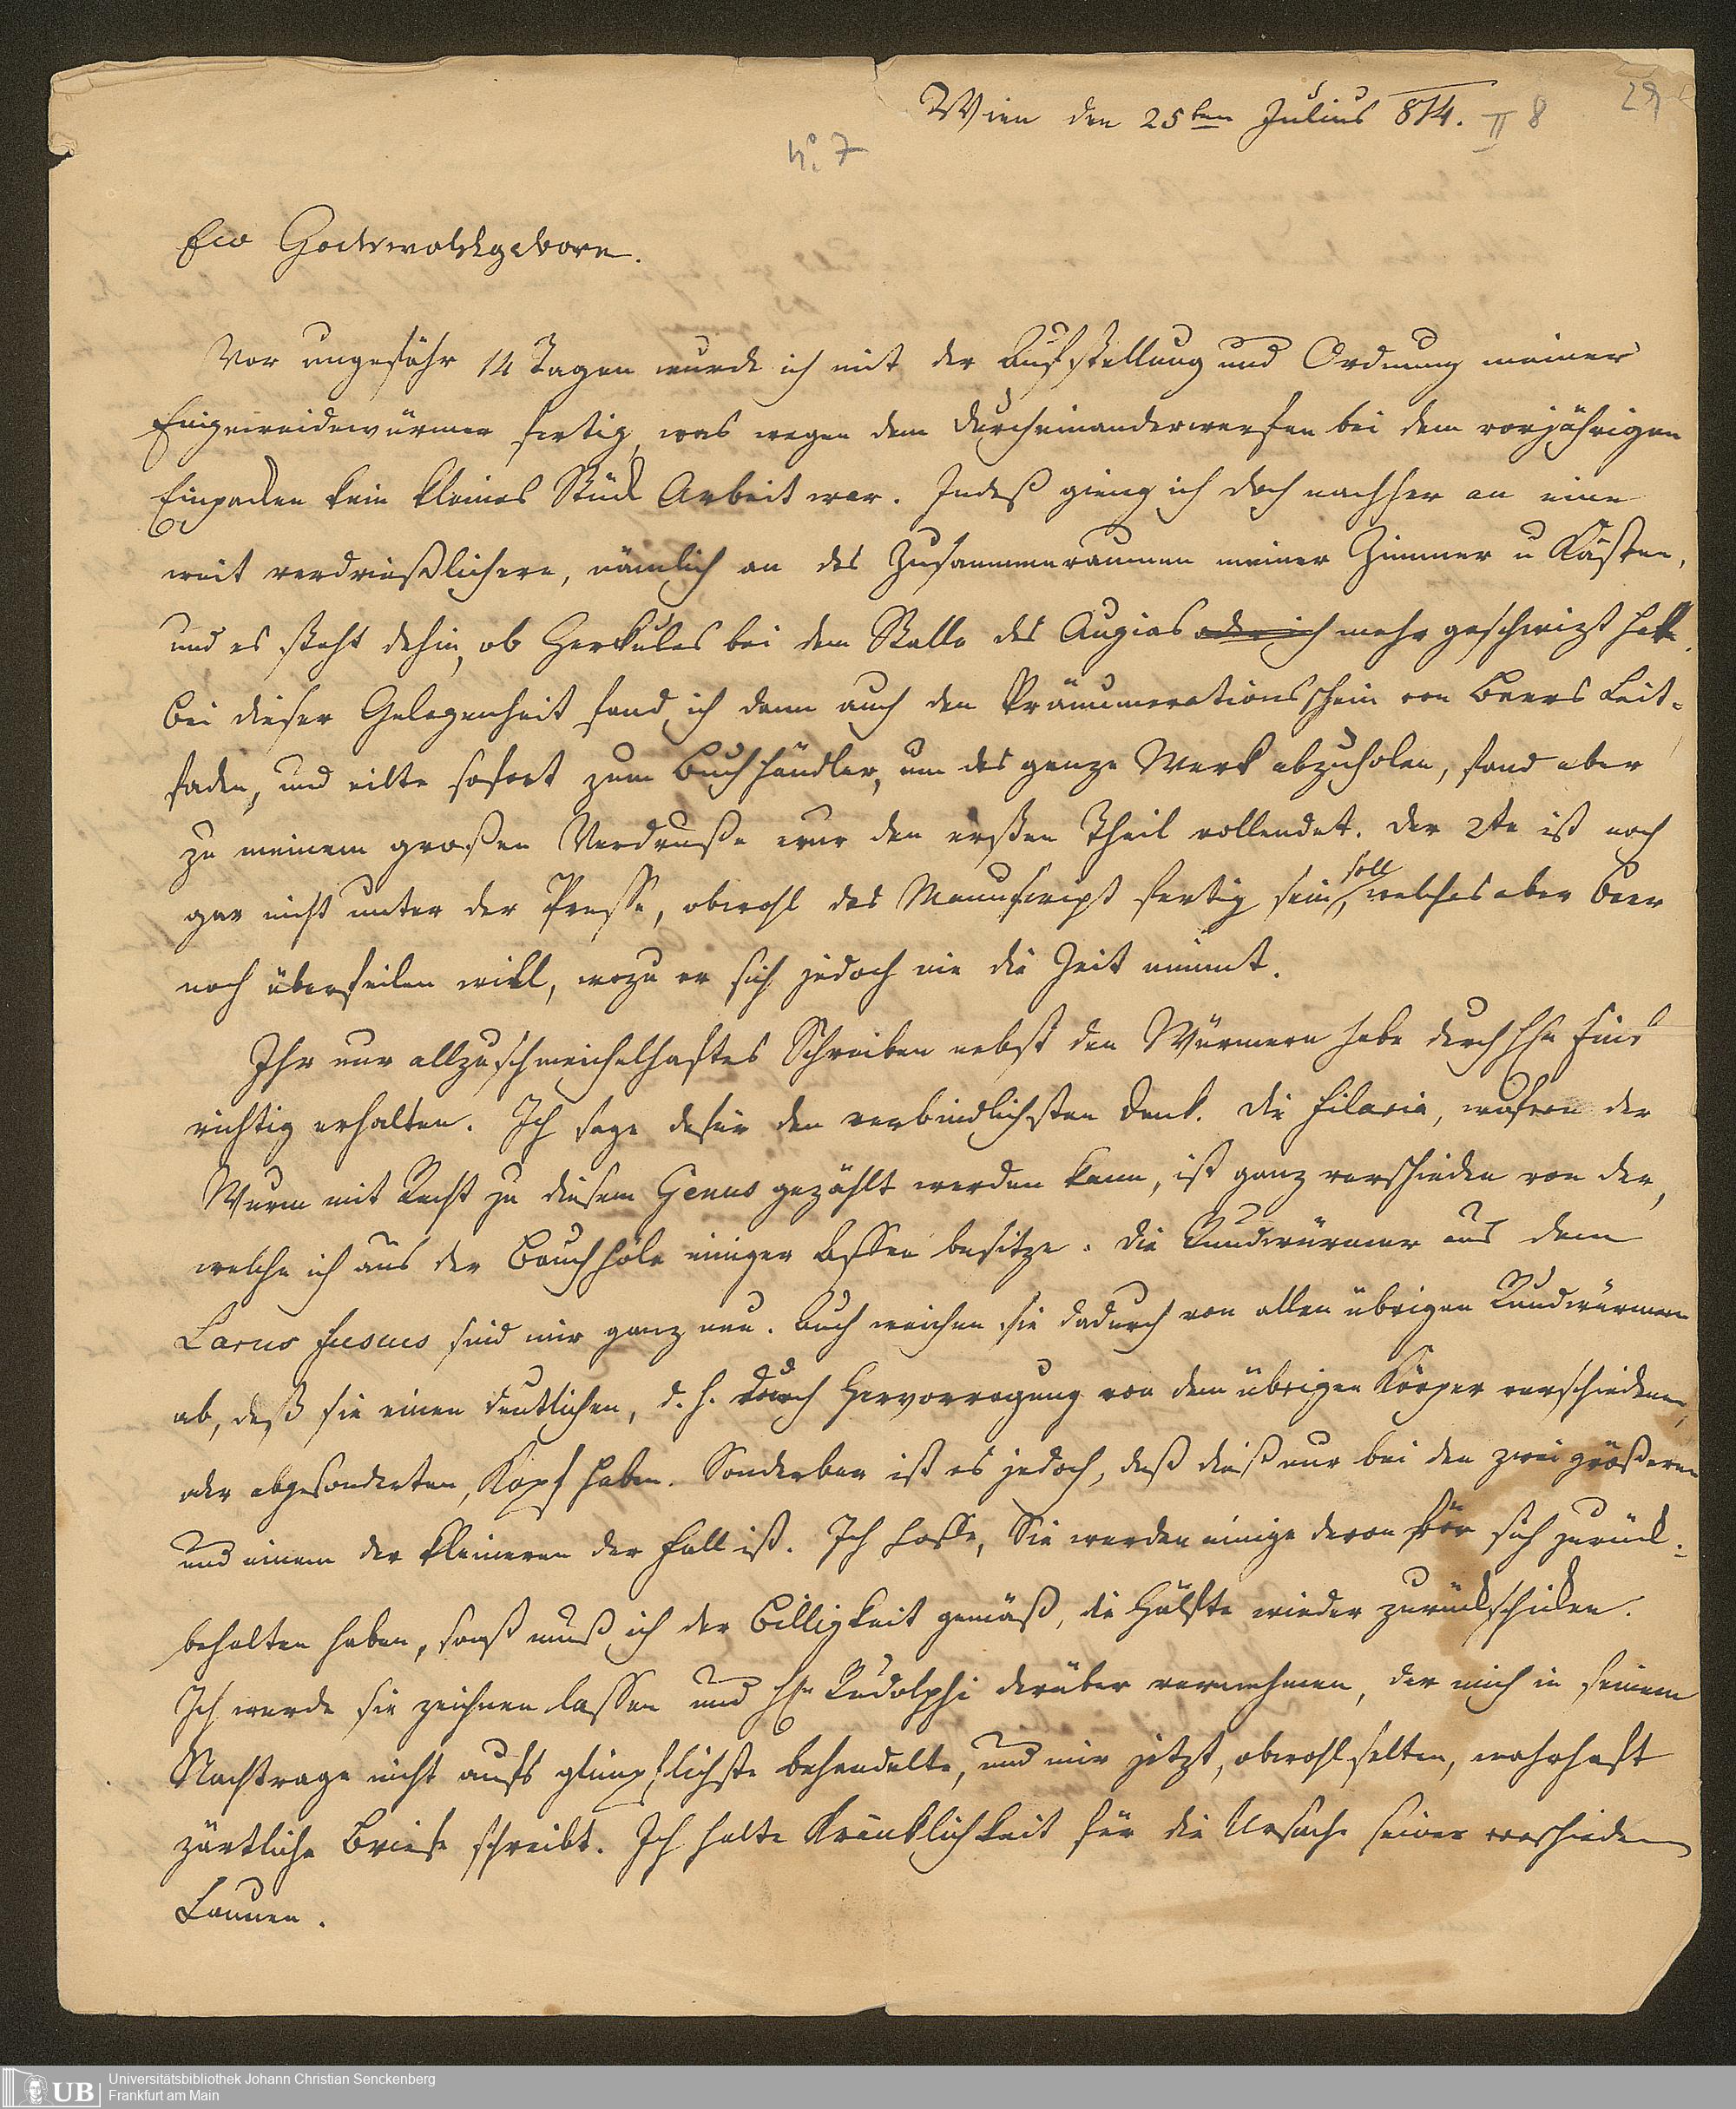 Wien den 25ten Julius 814. II 8
29
No. 7
Ew Hochwohlgeborn.
Vor ungefähr 14 Tagen wurde ich mit der Aufstellung und Ordnung meiner
Eingeweidewürmer fertig, was wegen dem Durcheinanderwerfen bei dem vorjährigen
Einpacken kein kleines Stück Arbeit war. Indeß gieng ich doch nachher an eine
weit verdrießlichere, nämlich an das Zusammenraumen meiner Zimmer u Kästen,
und es steht dahin, ob Herkules bei dem Stalle des Augias oder ich mehr geschwizt hat.
Bei dieser Gelegenheit fand ich dann auch den Pränumerationsschein von Beers Leit-
faden, und eilte sofort zum Buchhändler, um das ganze Werk abzuholen, fand aber
zu meinem großen Verdruße nur den ersten Theil vollendet. Der 2te ist noch
gar nicht unter der Presse, obwohl das Manuscript fertig sein soll, welches aber Beer
noch überfeilen will, wozu er sich jedoch nie die Zeit nimmt.
Ihr nur allzuschmeichelhaftes Schreiben nebst den Würmern habe durch Hn
richtig erhalten. Ich sage dafür den verbindlichsten Dank. Die Filaria, wofern der
Wurm mit Recht zu diesem Genus gezählt werden kann, ist ganz verschieden von der,
welche ich aus der Bauchhöle einiger Affen besitze. Die Rundwürmer aus dem
Larus fuscus sind mir ganz neu. Auch weichen sie dadurch von allen übrigen Rundwürmern
ab, daß sie einen deutlichen, d. h. durch Hervorragung von dem übrigen Körper verschiedenen,
oder abgesonderten, Kopf haben. Sonderbar ist es jedoch, daß dieß nur bei den zwei größeren
und einem der kleineren der Fall ist. Ich hoffe, Sie werden einige davon für sich zurück-
behalten haben, sonst muß ich der Billigkeit gemäß, die Hälfte wieder zurückschicken.
Ich werde sie zeichnen lassen und Hn Rudolphi darüber vernehmen, der mich in seinem
Nachtrage nicht aufs glimpflichste behandelte, und mir jetzt, obwohl selten, wahrhaft
zärtliche Briefe schreibt. Ich halte Kränklichkeit für die Ursache seiner verschiedenen
Launen.
Universitätsbibliothek Johann Christian Senckenberg
UB Frankfurt am Main